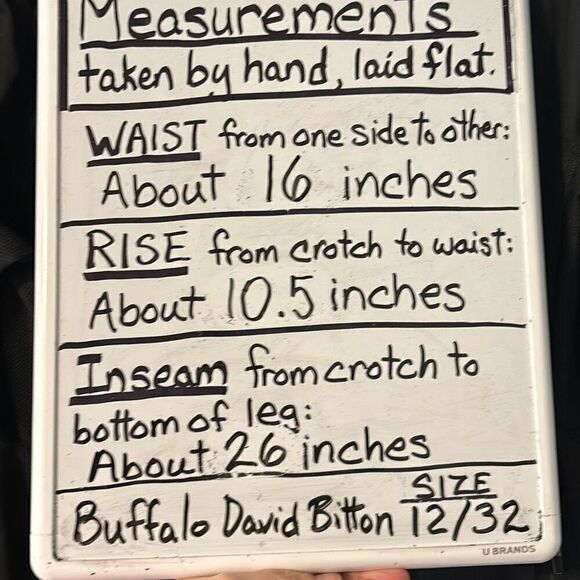 Measurements
taken by hand, laid flat.
WAIST from one side to other:
About 16 inches
RISE from crotch to waist:
About 10.5 inches
Inseam from crotch to
bottom of leg:
About 26 inches
SIZE
Buffalo David Bitton 12/32
U BRANDS